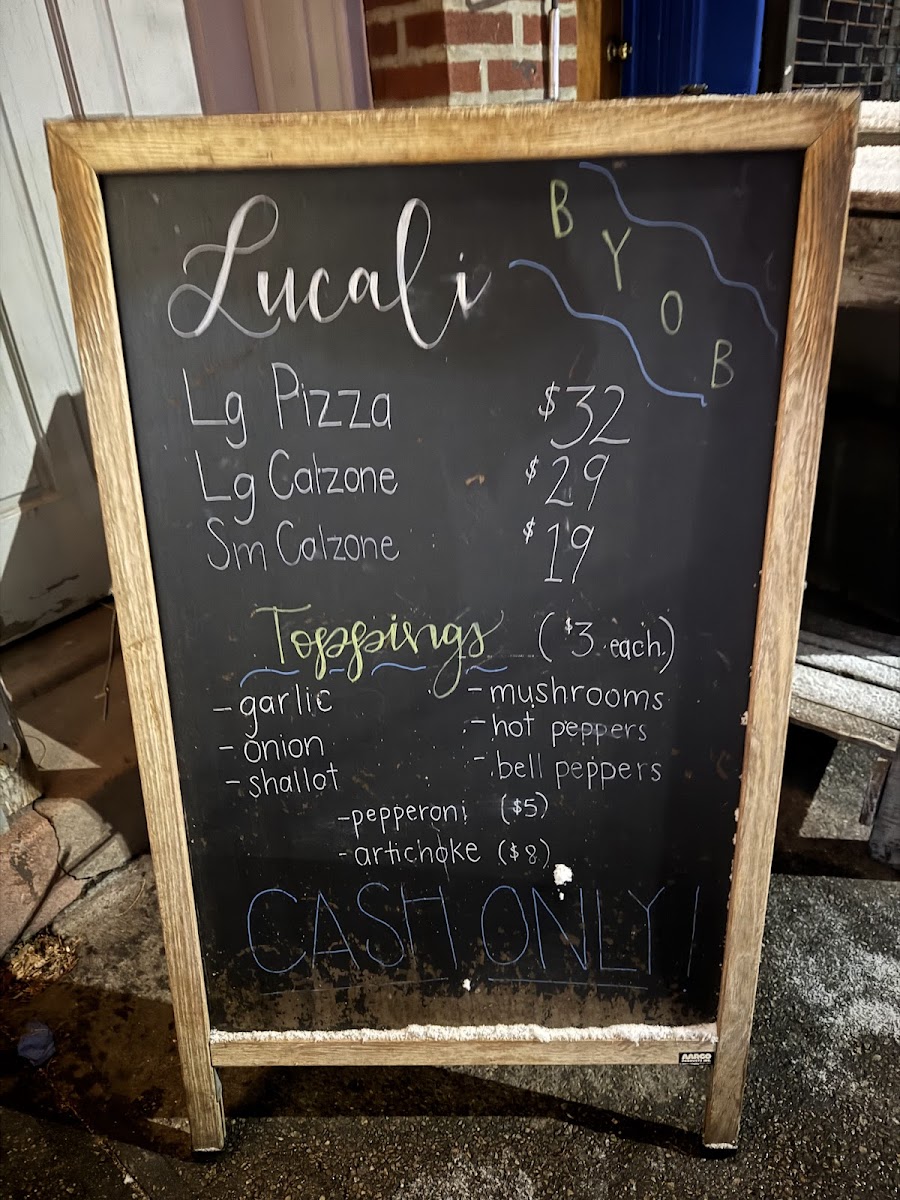 Lucali
BYOB
Lg Pizza $32
Lg Calzone $29
Sm Calzone $19
Toppings ($3 each)
- garlic
- onion
- shallot
- mushrooms
- hot peppers
- bell peppers
- pepperoni ($5)
- artichoke ($8)
CASH ONLY!
AARCO